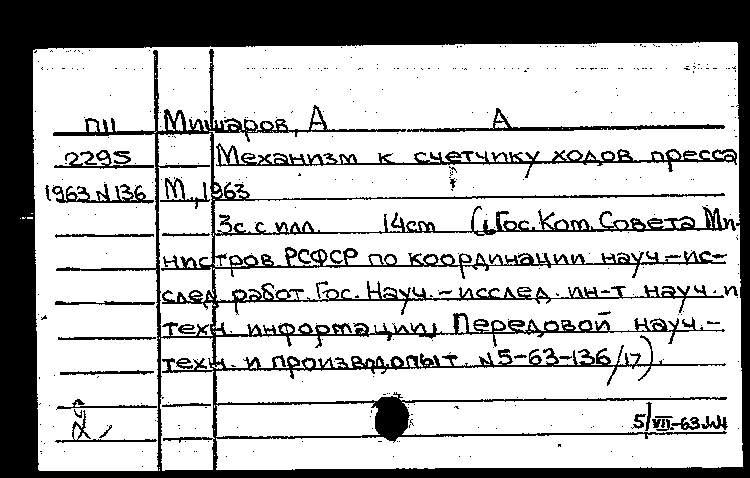 П11 Мишаров, А А
2295 Механизм к счетчику ходов пресса
1963 N 136 М., 1963
3с. с илл. 14cm (Гос. Ком. Совета Ми-
нистров РСФСР по координации науч.-ис-
след. работ. Гос. Науч.-исслед. ин-т науч. и
техн. информации, Передовой науч.-
техн. и производ. опыт. N 5-63-136/17).
5/VII-63